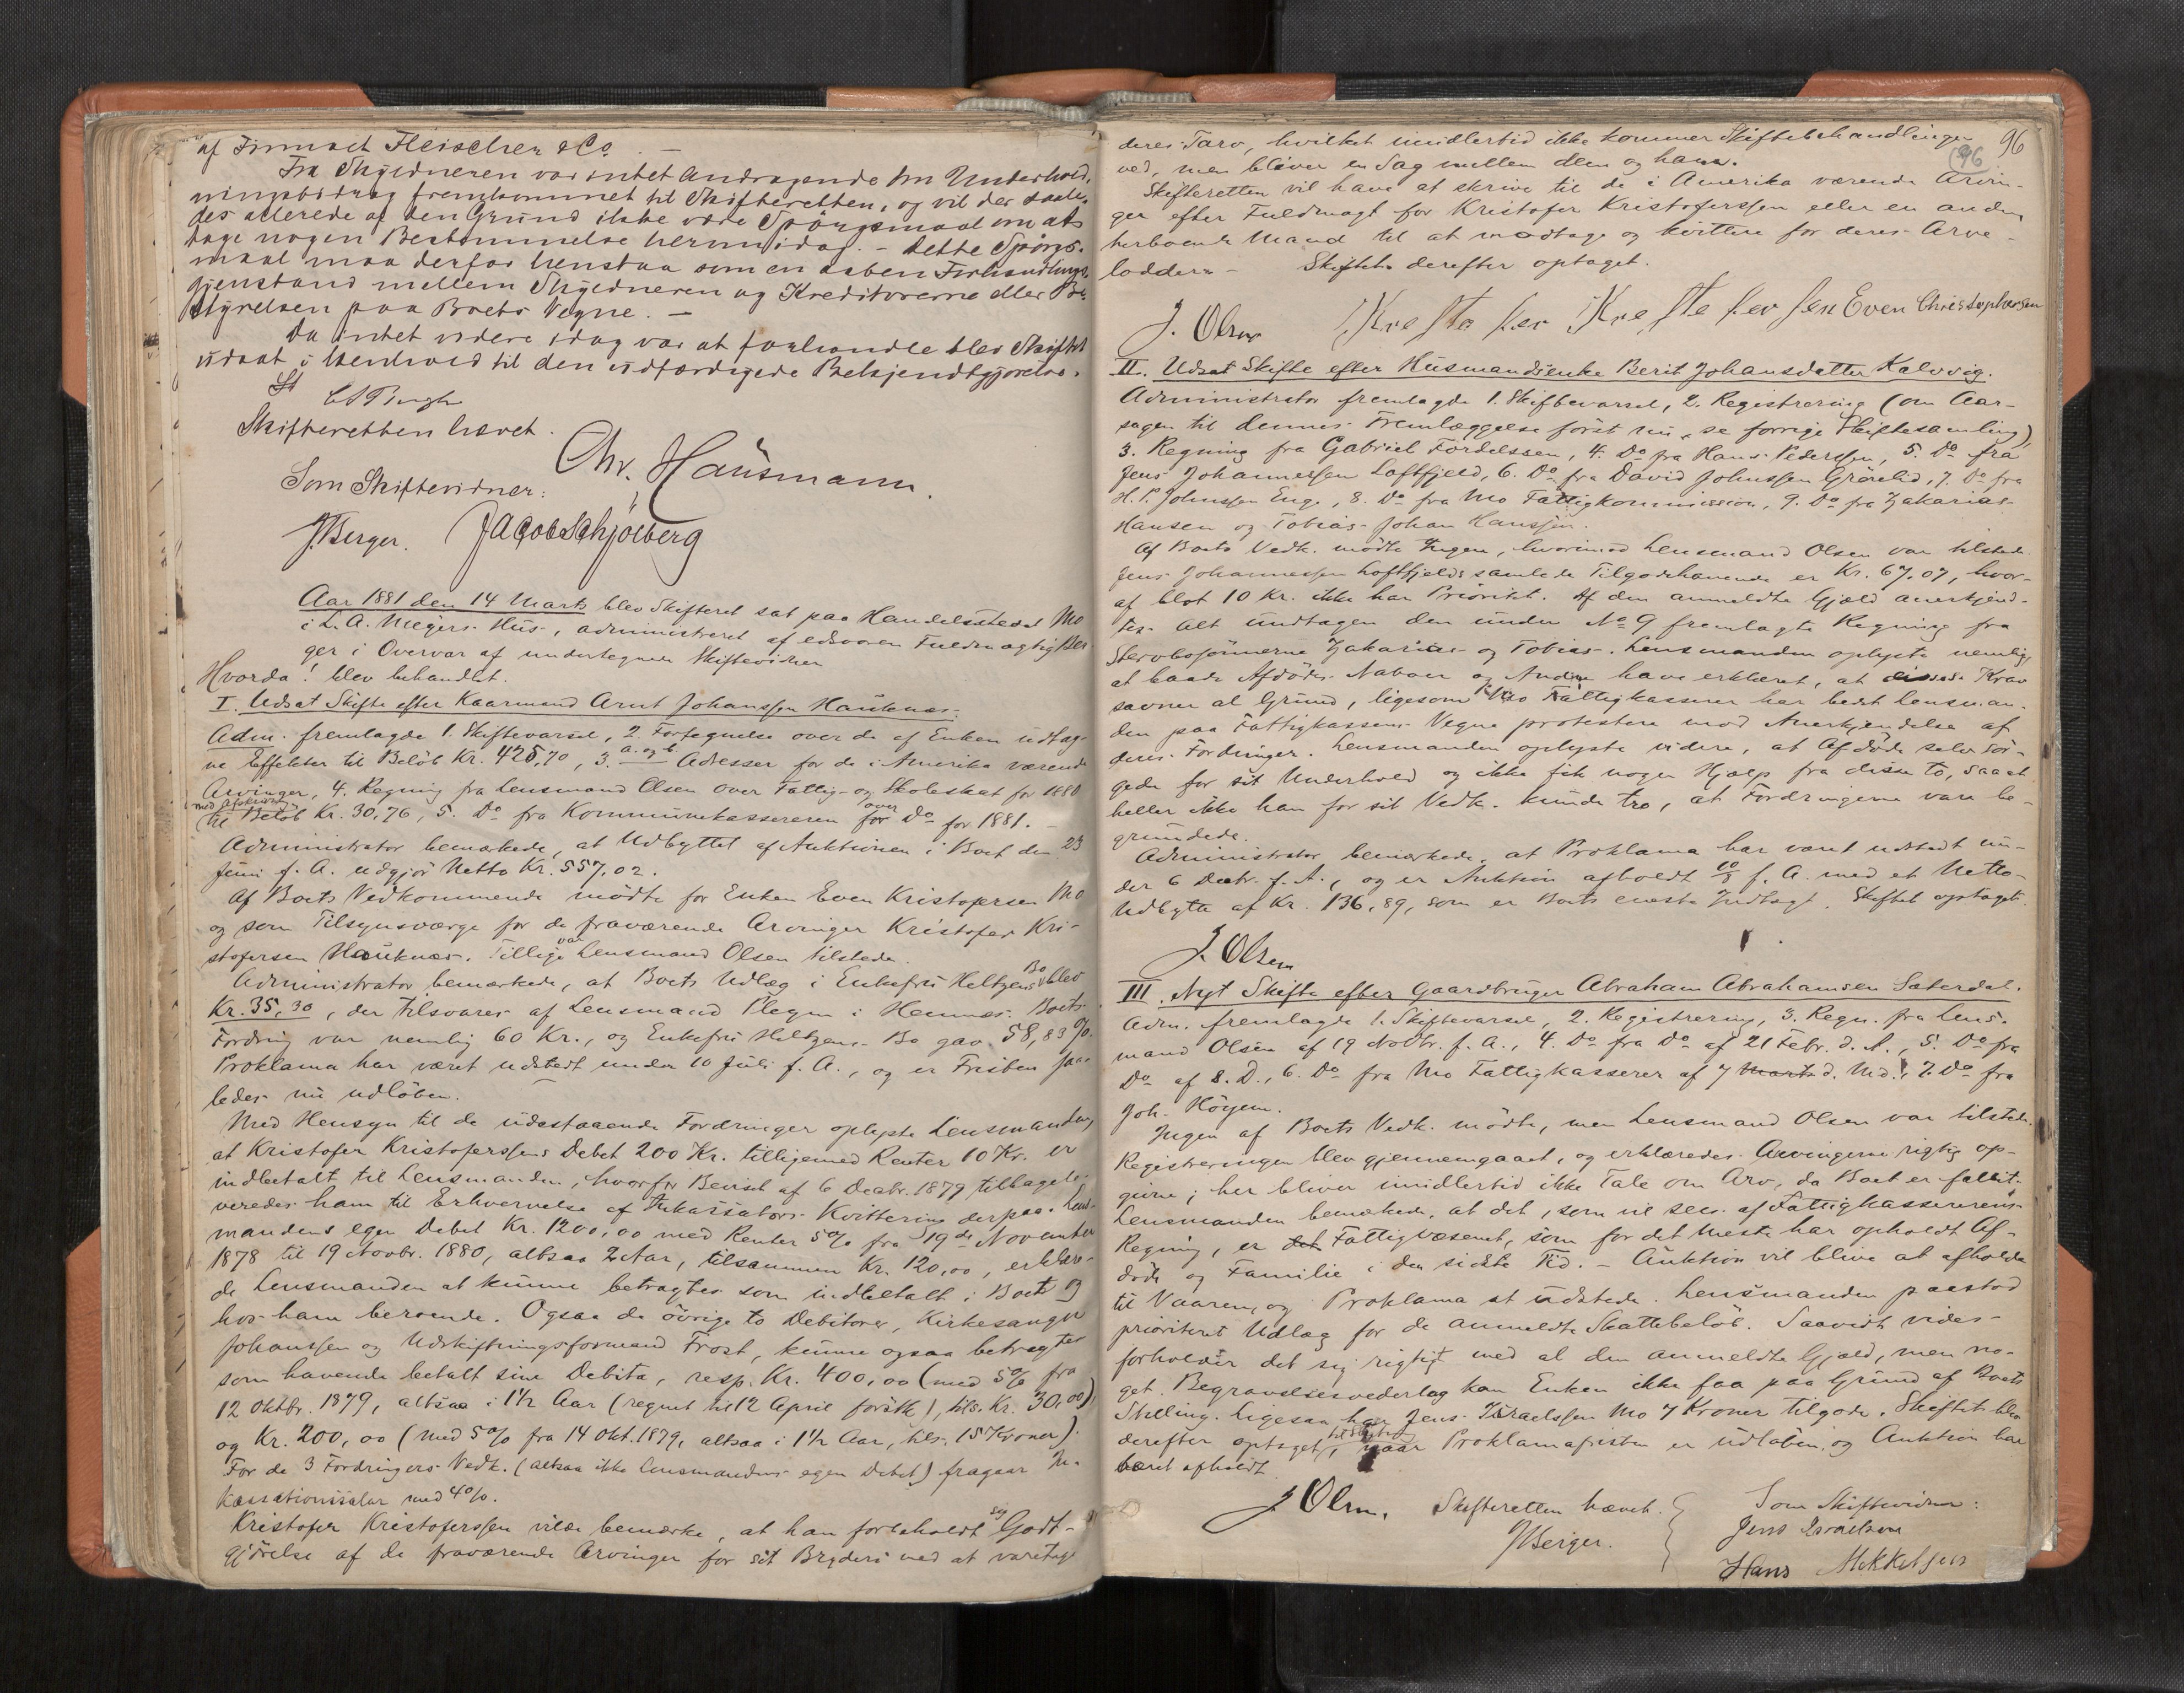 af Firmaet Fleischer & Co. —
Fra Skyldneren var intet Andragende om Underhold-
ningsbidrag fremkommet til Skifteretten, og vil der saale-
des allerede af den Grund ikke være Spørgsmaal om at
tage nogen Bestemmelse herom idag. – Dette Spørgs-
maal maa derfor henstaa som en aaben Forhandlings-
gjenstand mellem Skyldneren og Kreditorerne eller Be-
styrelsen paa Boets Vegne. —
Da intet videre idag var at forhandle blev Skiftet
udsat i Henhold til den udfærdigede Bekjendtgjørelse.
Skifteretten hævet.
Chr. Hausmann.
Som Skiftevidner:
J Berger. Jacob Schjölberg
Aar 1881 den 14 Marts blev Skifteret sat paa Handelsstedet Mo
i L. A. Meyers Hus, administreret af edsvoren Fuldmægtig Ber-
ger i Overvær af undertegnede Skiftevidner
Hvorda! blev behandlet.
I. Udsat Skifte efter Kaarmand Arnt Johanssen Hauknæs.
Adm. fremlagde 1. Skiftevarsel, 2 Fortegnelse over de af Enken udtag-
ne Effekter til Beløb Kr. 425,70, 3. a. og b Adresser for de i Amerika værende
Arvinger, 4. Regning fra Lensmand Olsen over Fattig- og Skoleskat for 1880
med Afskrift
til Beløb Kr. 30,76, 5. Do fra Kommunekassereren for over Do for 1881. —
Administrator bemærkede, at Udbyttet af Auktionen i Boet den 23
Juni f. A. udgjør Netto Kr. 557,02.
Af Boets Vedkommende mødte for Enken Even Kristofersen Mo
og som Tilsynsværge for de fraværende Arvinger Kristofer Kri-
stofersen Hauknæs. Tillige var Lensmand Olsen tilstede.
Administrator bemærkede, at Boets Udlæg i Enkefru Heltzens Bo blev
Kr. 35,30, der tilsvares af Lensmand Plegen i Hemnes. Boets
Fordring var nemlig 60 Kr., og Enkefru Heltzens Bo gav 58,83 %.
Proklama har været udstedt under 10 Juli f. A., og er Fristen saa-
ledes nu udløben.
Med Hensyn til de udestaaende Fordringer oplyste Lensmanden,
at Kristofer Kristoferssens Debet 200 Kr. tilligemed Renter 10 Kr. er
indbetalt til Lensmanden, hvorfor Beviset af 6 Decbr. 1879 tilbagele-
veredes ham til Erhvervelse af Inkassators Kvittering derpaa. Lens-
mandens egen Debet Kr. 1200,00 med Renter 5% fra 19de November
1878 til 19 Novbr. 1880, altsaa 2 Aar, tilsammen Kr. 120,00, erklære-
de Lensmanden at kunne betragtes som indbetalt i Boet og
hos ham beroende. Ogsaa de øvrige to Debitorer, Kirkesanger
Johanssen og Udskiftningsformand Frost, kunne ogsaa betragtes
som havende betalt sine Debita, resp. Kr. 400,00 (med 5% fra
12 Oktbr. 1879, altsaa i 1½ Aar (regnet til 12 April førstk), tils. Kr. 30,00)
og Kr. 200,00 (med 5% fra 14 Okt. 1879, altsaa i 1½ Aar, tils. 15 Kroner).
For de 3 Fordringers Vedk. (altsaa ikke Lensmandens egen Debet) fragaar In-
kassationssalær med 4%.
Kristofer Kristoferssen vilde bemærke, at han forbeholdt sig Godt-
gjørelse af de fraværende Arvinger for sit Bryderi ved at varetage
96
96
deres Tarv, hvilket imidlertid ikke kommer Skiftebehandlingen
ved, men bliver en Sag mellem dem og ham.
Skifteretten vil have at skrive til de i Amerika værende Arvin-
ger efter Fuldmagt for Kristofer Kristoferssen eller en anden
herboende Mand til at modtage og kvittere for deres Arve-
lodder. – Skiftet derefter optaget.
J. Olsen Kresto fer Kresto fer sen Even Christophersen
II. Udsat Skifte efter Husmandsenke Berit Johansdatter Kalvvig.
Administrator fremlagde 1. Skiftevarsel, 2. Registrering (om Aar-
sagen til dennes Fremlæggelse først nu, se forrige Skiftesamling),
3. Regning fra Gabriel Fördelssen, 4. Do fra Hans Pederssen, 5. Do fra
Jens Johannessen Loftfjeld, 6. Do fra David Johnssen Grönlid, 7. Do fra
H. P. Johnssen Enge, 8. Do fra Mo Fattigkommission, 9. Do fra Zakarias
Hansen og Tobias Johan Hanssen.
Af Boets Vedk. mødte Ingen, hvorimod Lensmand Olsen var tilstede
Jens Johannessen Loftfjelds samlede Tilgodehavende er Kr. 67,07, hvor-
af blot 10 Kr. ikke har Prioritet. Af den anmeldte Gjæld anerkjend-
tes Alt undtagen den under No 9 fremlagte Regning fra
Stervbosønnerne Zakarias og Tobias. Lensmanden oplyste nemlig,
at baade Afdødes Naboer og Andre have erklæret, at disses Krav
savner al Grund, ligesom Mo Fattigkasserer har bedt Lensman-
den paa Fattigkassens Vegne protestere mod Anerkjendelse af
deres Fordringer. Lensmanden oplyste videre, at Afdøde selv sør-
gede for sit Underhold og ikke fik nogen Hjælp fra disse to, saa at
heller ikke han for sit Vedk. kunde tro, at Fordringerne vare be-
grundede.
Administrator bemærkede, at Proklama har været udstedt un-
der 6 Decbr. f. A., og er Auktion afholdt f. A. med et Netto-
Udbytte af Kr. 136,89, som er Boets eneste Indtægt. Skiftet optaget.
J. Olsen
III. Nyt Skifte efter Gaardbruger Abraham Abrahamsen Sæterdal.
Adm. fremlagde 1. Skiftevarsel, 2. Registrering, 3. Regn. fra Lens-
mand Olsen af 19 Novbr. f. A., 4. Do fra Do af 21 Febr. d. A., 5. Do fra
Do af 8. D., 6. Do fra Mo Fattigkasserer af 7 Marts d. Md., 7. Do fra
Joh. Høyem.
Ingen af Boets Vedk. mødte, men Lensmand Olsen var tilstede.
Registreringen blev gjennemgaaet, og erklæredes Arvingerne rigtig op-
givne; her bliver imidlertid ikke Tale om Arv, da Boet er fallit.
Lensmanden bemærkede, at det, som vil sees af Fattigkassererens
Regning, er det Fattigvæsenet, som for det Meste har opholdt Af-
døde og Familie i den sidste Tid. – Auktion vil blive at afholde
til Vaaren, og Proklama at udstede. Lensmanden paastod
prioriteret Udlæg for de anmeldte Skattebeløb. Saavidt vides
forholder det sig rigtigt med al den anmeldte Gjæld, men no-
get Begravelsesvederlag kan Enken ikke faa paa Grund af Boets
Stilling. Ligesaa har Jens Israelssen Mo 7 Kroner tilgode. Skiftet blev
derefter optaget, naar Proklamafristen er udløben, og Auktion har
været afholdt
J Olsen. Skifteretten hævet.
J Berger.
Som Skiftevidner:
Jens Israelsen
Hans Mekkelsen